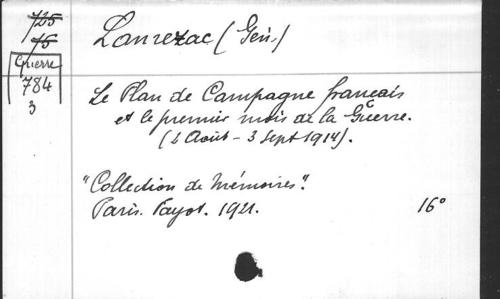 725
75
Guerre
784
3
Lanrezac (Gén.)
Le Plan de Campagne français
et le premier mois de la Guerre.
(2 Août - 3 Sept 1914).
"Collection de Mémoires".
Paris. Payot. 1921. 16°